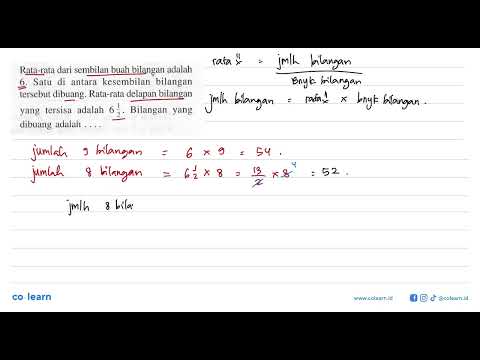 Rata-rata dari sembilan buah bilangan adalah
6. Satu di antara kesembilan bilangan
tersebut dibuang. Rata-rata delapan bilangan
yang tersisa adalah 6 1/2. Bilangan yang
dibuang adalah . . . .
rata² = jmlh bilangan / Bnyk bilangan
jmlh bilangan = rata² x bnyk bilangan .
jumlah 9 bilangan = 6 x 9 = 54 .
jumlah 8 bilangan = 6 1/2 x 8 = 13/2 x 8 4 = 52 .
jmlh 8 bila
co learn
www.colearn.id
@colearn.id